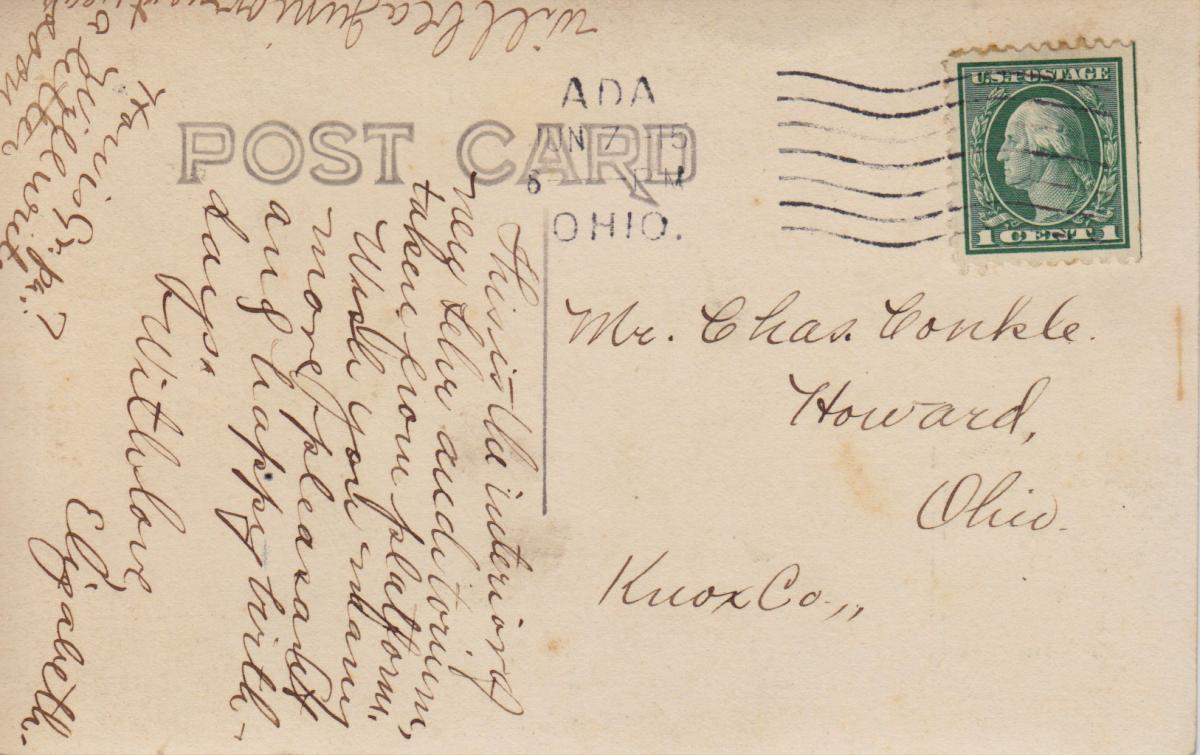 POST CARD
ADA
JUN 7 15
6 PM
OHIO.
U.S. POSTAGE
1 CENT 1
Mr. Chas. Conkle.
Howard,
Ohio.
Knox Co.,,
This is the interior of
new Lehr auditorium,
taken from platform.
Wish you many
more pleasant
and happy birth-
days.
With love
Elizabeth.
will be a Junior next year
a
letter
soon